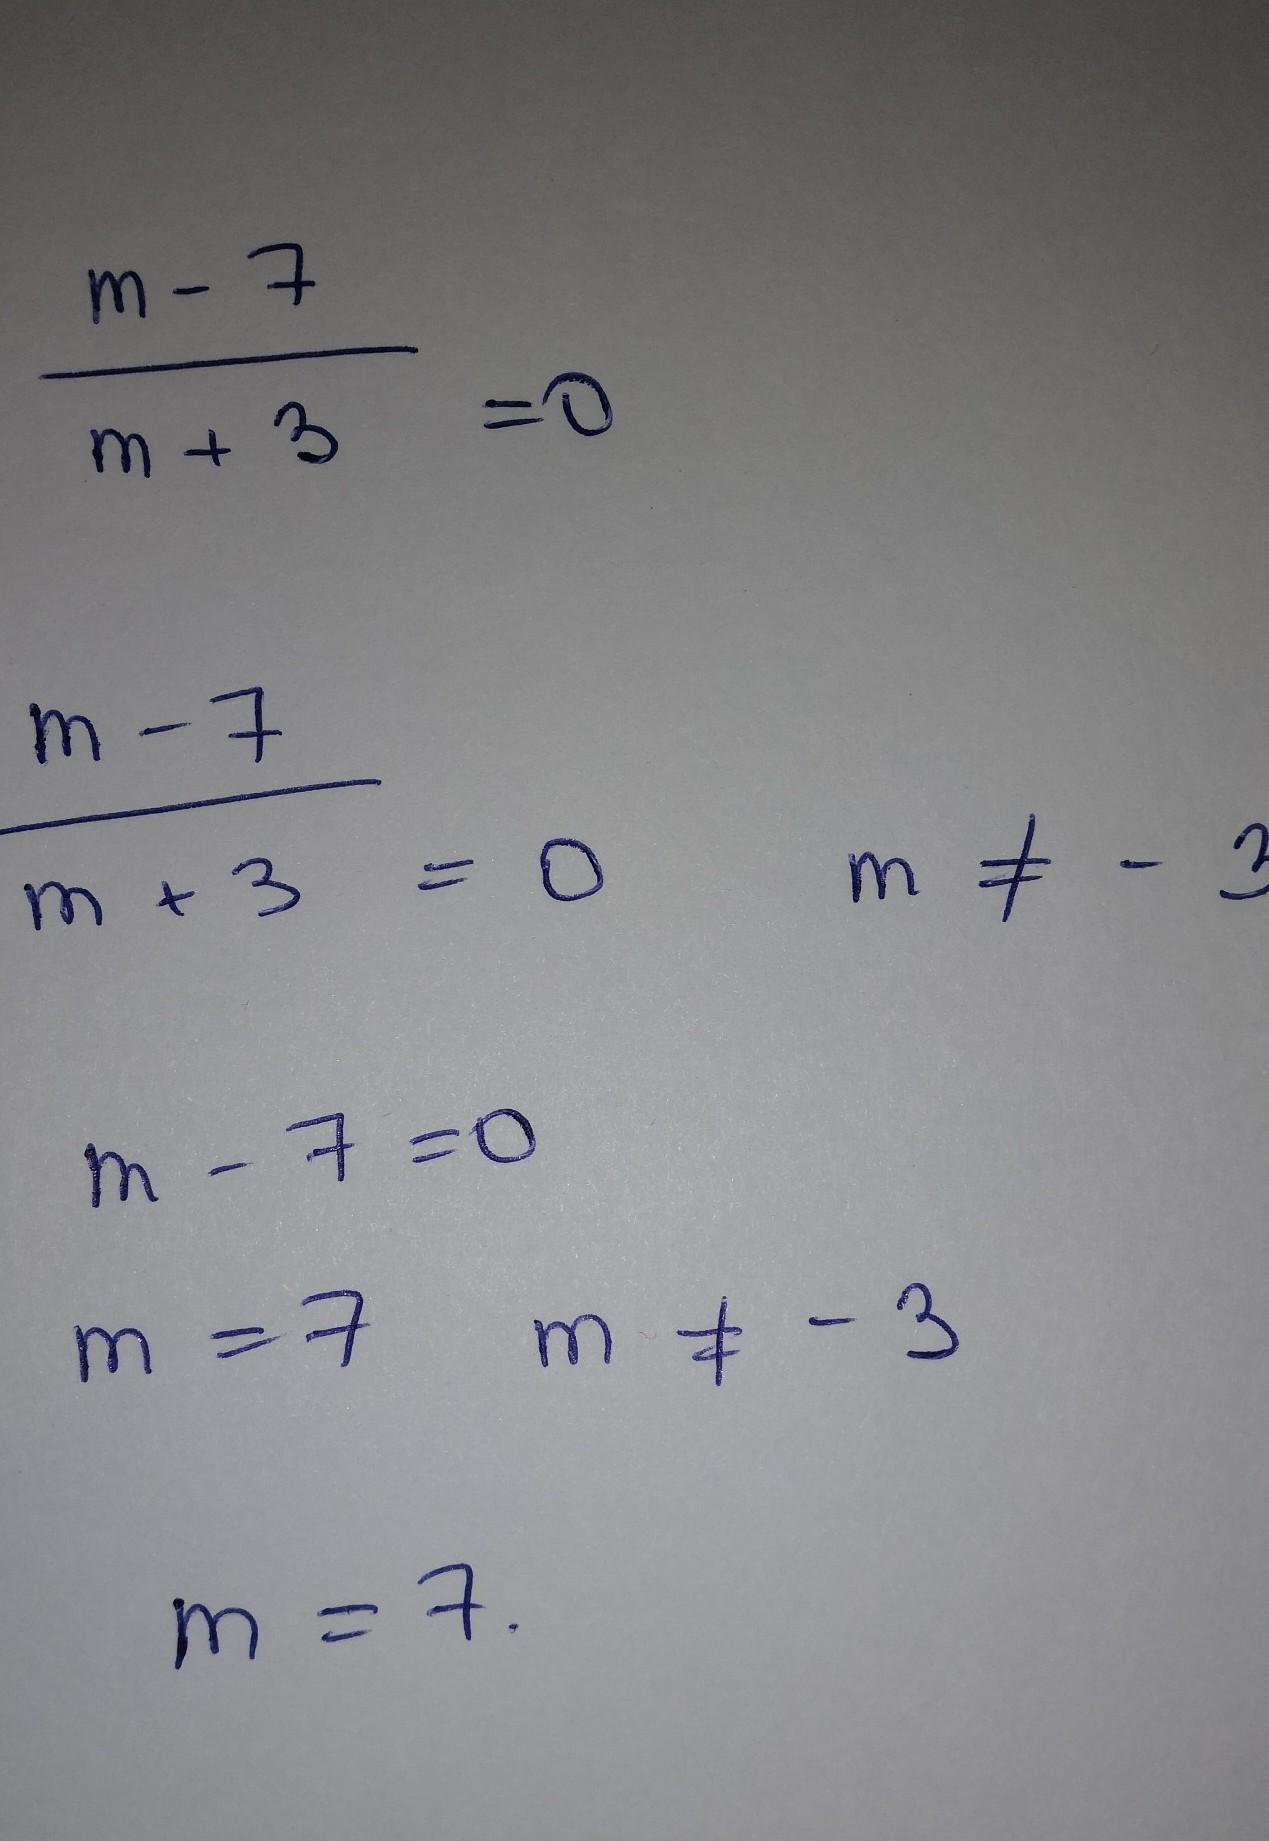 m - 7
m + 3 = 0
m - 7
m + 3 = 0 m ≠ - 3
m - 7 = 0
m = 7 m ≠ - 3
m = 7.